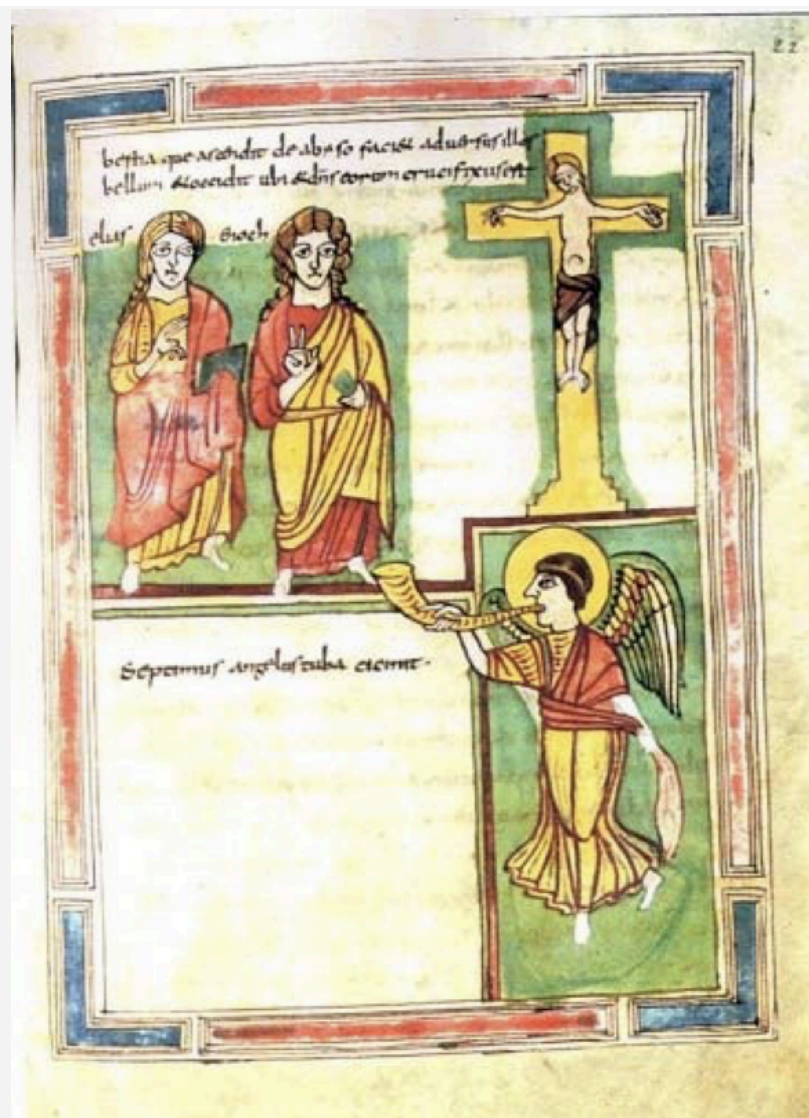 22
bestia que ascendit de abyso faci& aduersus illos
bellum &occidit ubi &dns eorum crucifixus est
elias enoch
Septimus angelus tuba cicinit.